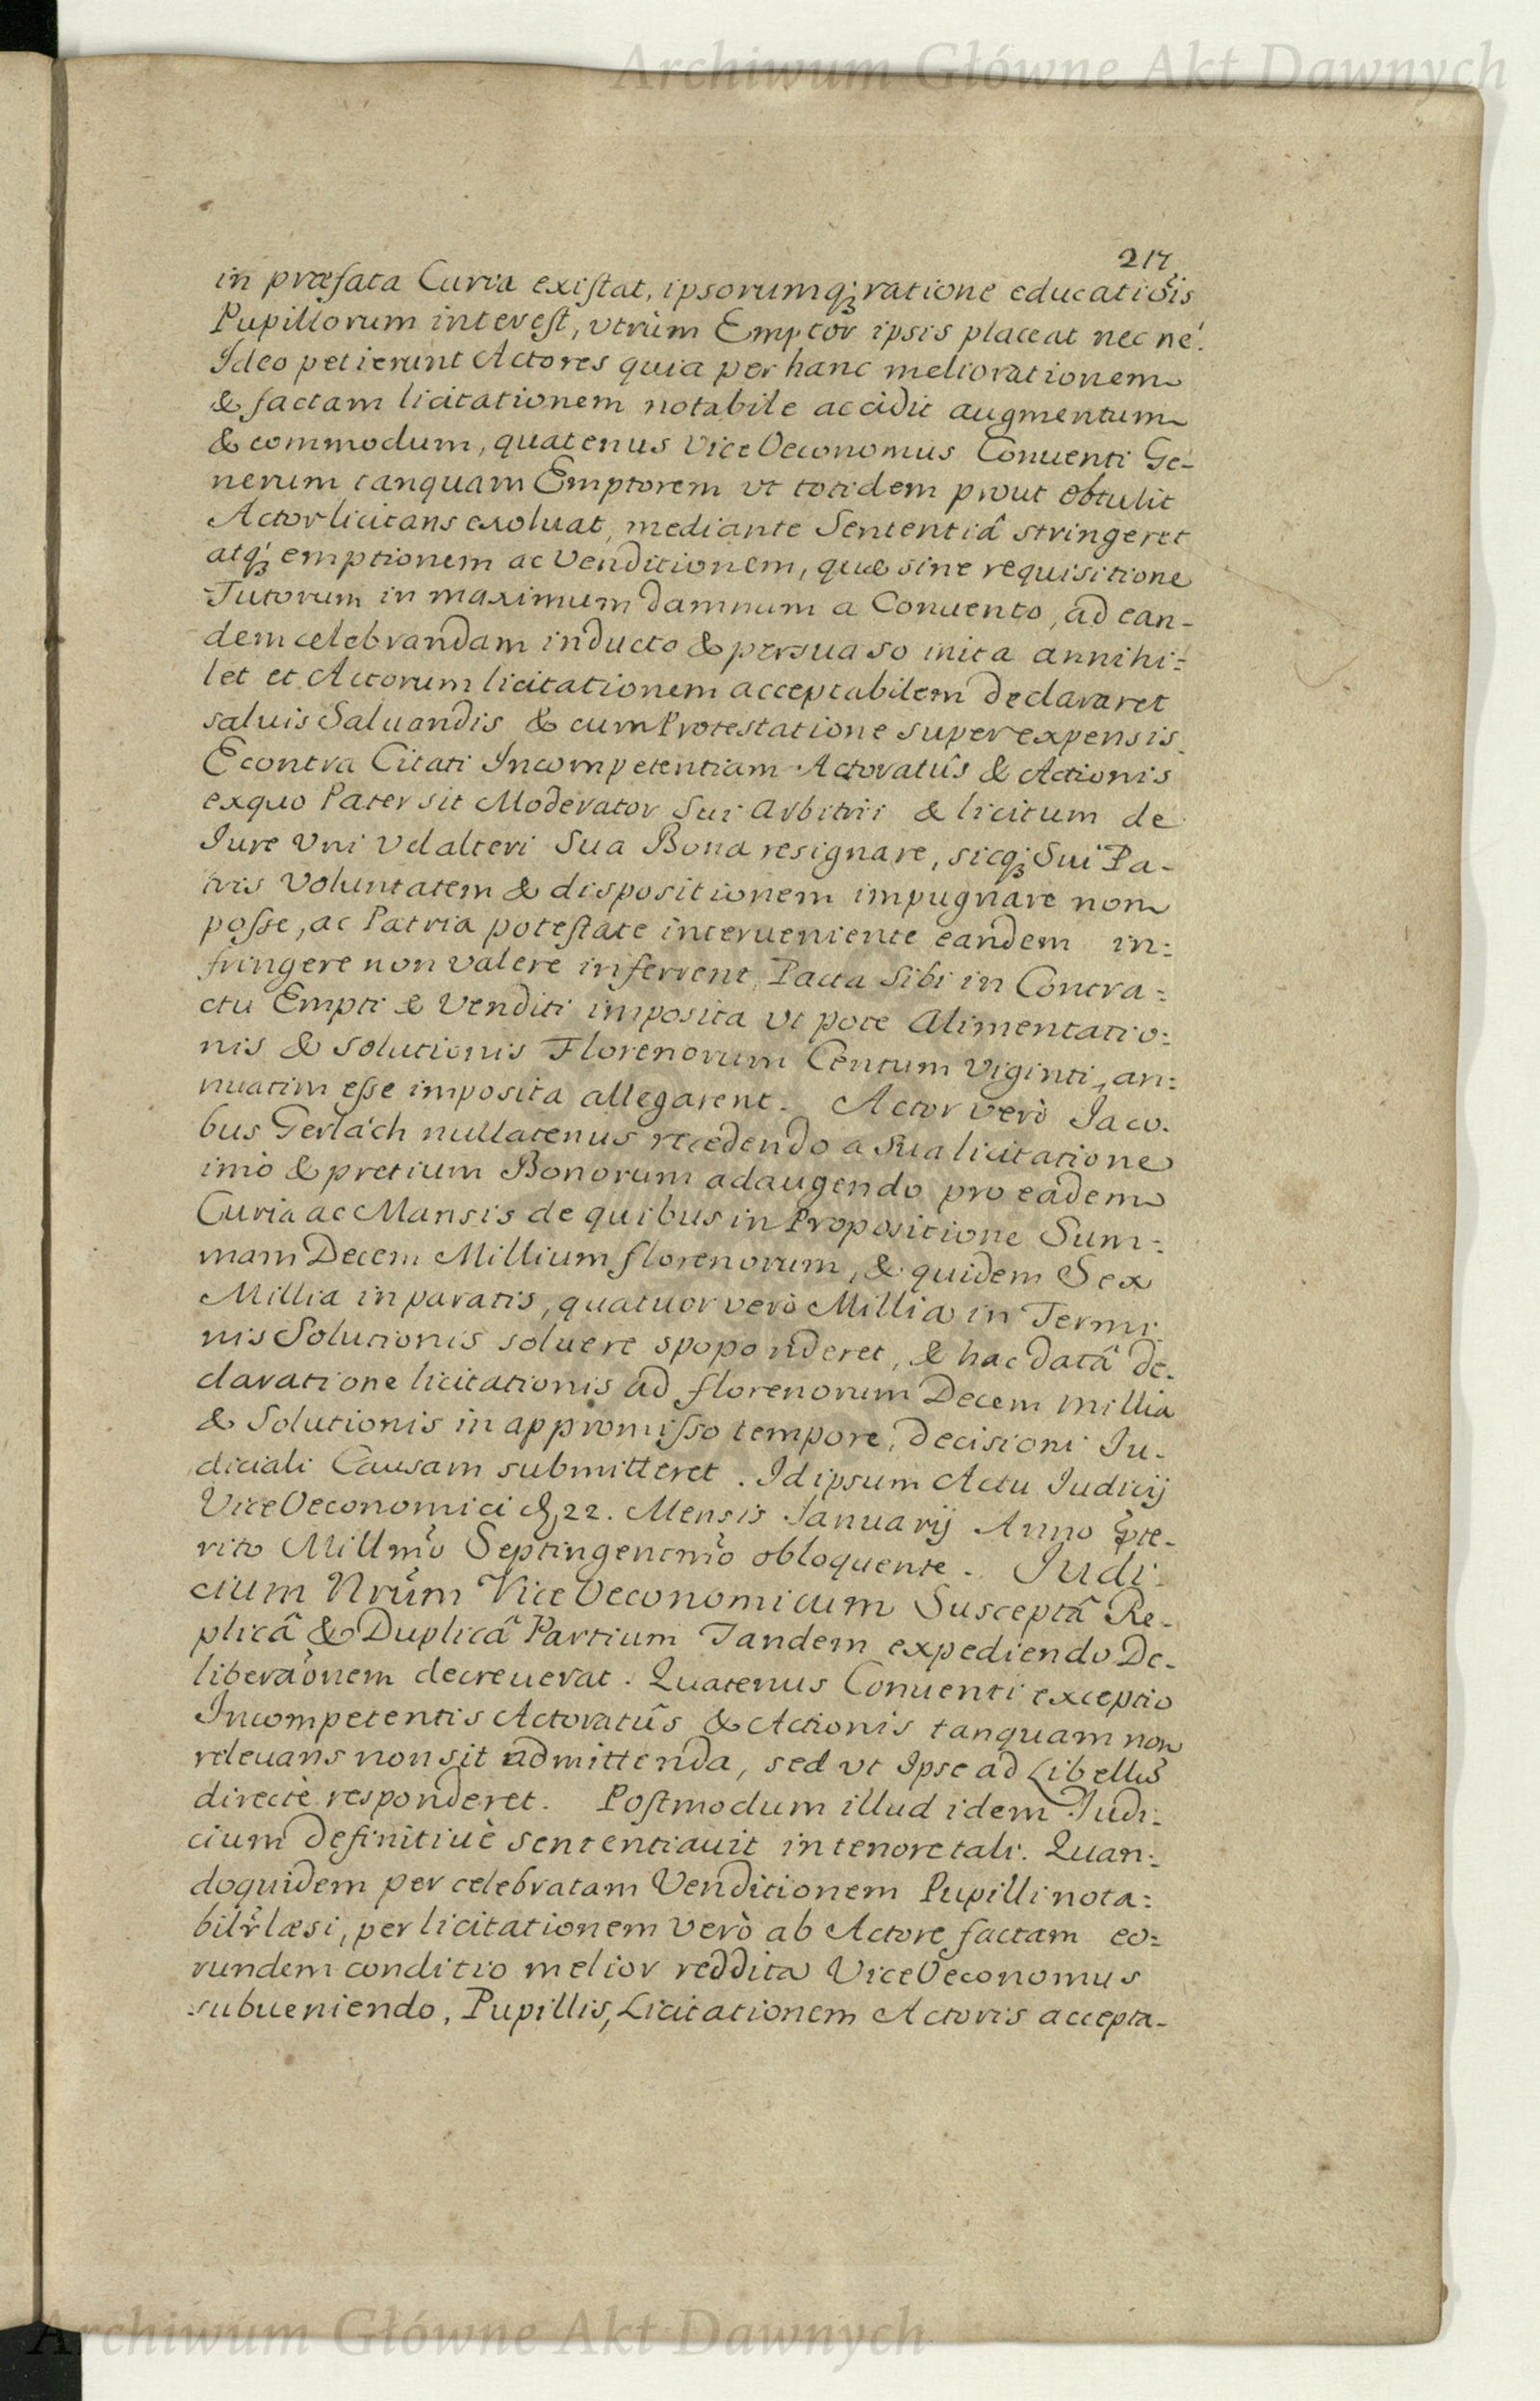 Archiwum Główne Akt Dawnych
217
in præfata Curia existat, ipsorumq; ratione educatiõis
Pupillorum interest, vtrùm Emptor ipsis placeat nec né.
Ideo petierunt Actores quia per hanc meliorationem
& factam licitationem notabile accidit augmentum
& commodum, quatenus ViceOeconomus Conuenti Ge-
nerum tanquam Emptorem vt totidem prout obtulit
Actor licitans exoluat, mediante Sententiâ stringeret
atq; emptionem ac Venditionem, quæ sine requisitione
Tutorum in maximum damnum a Conuento, ad ean-
dem celebrandam inducto & persuaso inita annihi=
let et Actorum licitationem acceptabilem declararet
saluis Saluandis & cum Protestatione super expensis.
Econtra Citati Incompetentiam Actoratûs & Actionis
exquo Pater sit Moderator Sui Arbitrii & licitum de
Iure Vni Vel alteri Sua Bona resignare, sicq; Sui Pa-
tris Voluntatem & dispositionem impugnare non
posse, ac Patria potestate interueniente eandem in=
fringere non valere inferrent, Pacta Sibi in Contra=
ctu Empti & Venditi imposita vt pote Alimentatio=
nis & solutionis Florenorum Centum Viginti, an=
nuatim esse imposita allegarent. Actor verò Iaco.
bus Gerlách nullatenus recedendo a sua licitatione
imò & pretium Bonorum adaugendo pro eadem
Curia ac Mansis de quibus in Propositione Sum=
mam Decem Millium florenorum, & quidem Sex
Millia in paratis, quatuor verò Millia in Termi
nis Solutionis soluere spoponderet, & hac datâ de.
claratione licitationis ad florenorum Decem millia
& Solutionis in appromisso tempore, decisioni Iu-
diciali Causam submitteret. Id ipsum Actu Iudicij
ViceOeconomici 22. Mensis Ianuarij Anno p̃te-
rito Millmõ Septingentmõ obloquente. Iudi.
cium Nrũm ViceOeconomicum Susceptâ Re-
plicâ & Duplicâ Partium Tandem expediendo De-
liberaõnem decreuerat. Quatenus Conuenti exceptio
Incompetentis Actoratûs & Actionis tanquam non
releuans non sit admittenda, sed vt Ipse ad Libellũ
directè responderet. Postmodum illud idem Iudi=
cium definitiuè sententiauit in tenore tali. Quan=
doquidem per celebratam Venditionem Pupilli nota=
bilr̃ læsi, per licitationem verò ab Actore factam eo=
rundem conditio melior reddita ViceOeconomus
subueniendo, Pupillis, Licitationem Actoris accepta-
Archiwum Główne Akt Dawnych